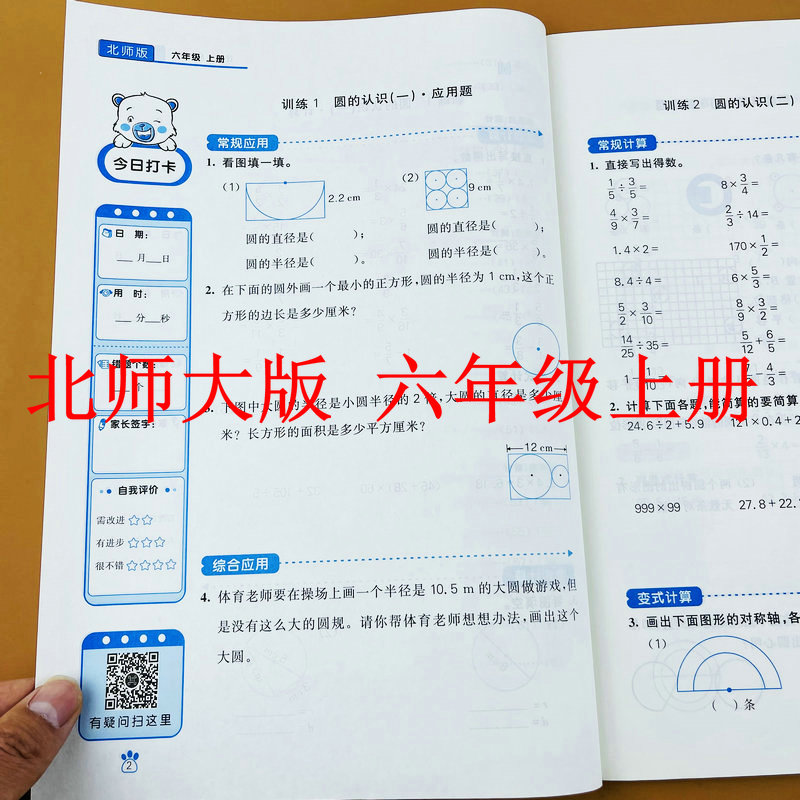 北师版 六年级 上册
今日打卡
日 期:
月 日
用 时:
分 秒
错题个数:
个
家长签字:
自我评价
需改进 ☆☆
有进步 ☆☆☆
很不错 ☆☆☆☆
有疑问扫这里
2
训练 1 圆的认识(一)·应用题
常规应用
1. 看图填一填。
(1) 2.2 cm
(2) 9 cm
圆的直径是( ); 圆的直径是( );
圆的半径是( )。 圆的半径是( )。
2. 在下面的圆外画一个最小的正方形,圆的半径为 1 cm,这个正
方形的边长是多少厘米?
北师大版 六年级上册
下图中大圆的半径是小圆半径的 2 倍,大圆的直径是多少厘
米?长方形的面积是多少平方厘米?
12 cm
综合应用
4. 体育老师要在操场上画一个半径是 10.5 m 的大圆做游戏,但
是没有这么大的圆规。请你帮体育老师想想办法,画出这个
大圆。
训练 2 圆的认识(二)
常规计算
1. 直接写出得数。
1/5÷3/5= 8×3/4=
4/9×3/7= 2/3÷14=
1.4×2= 170×1/2=
8.4÷4= 6×5/3=
5/2×3/10= 8/9×3/2=
14/25÷35= 5/12+6/5=
2. 计算下面各题,能简算的要简算
24.6÷2+5.9 121×0.4+2
999×99 27.8+22.
变式计算
3. 画出下面图形的对称轴,各
(1)
( )条